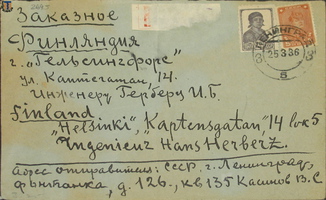 Заказное
Финляндия
г. „Гельсингфорс"
ул. Каптегатан, 14.
Инженеру Герберц И.Б.
Finland
„Helsinki", Kaptensgatan,"14 lok 5
Ingenieur Hans Herberz.
Адрес отправителя: СССР, г. Ленинград,
Фонтанка, д. 126., кв 135 Касимов В.С
25 3 36